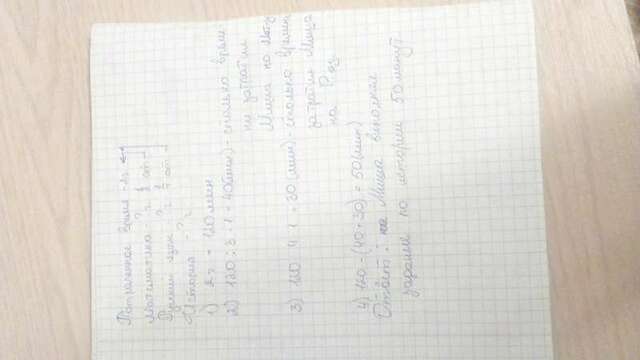 Потраченное время - 2ч
Математика - ? ч 1/3 от
Русский язык - ? ч 1/4 от
История - ? ч
1) 2ч = 120 мин
2) 120 : 3 · 1 = 40 (мин) - сколько време-
ни затратил
Миша на Мат.
3) 120 : 4 · 1 = 30 (мин) - сколько времени
затратил Миша
на Р. яз.
4) 120 - (40 + 30) = 50 (мин)
Ответ: Миша выполнял
задание по истории 50 минут